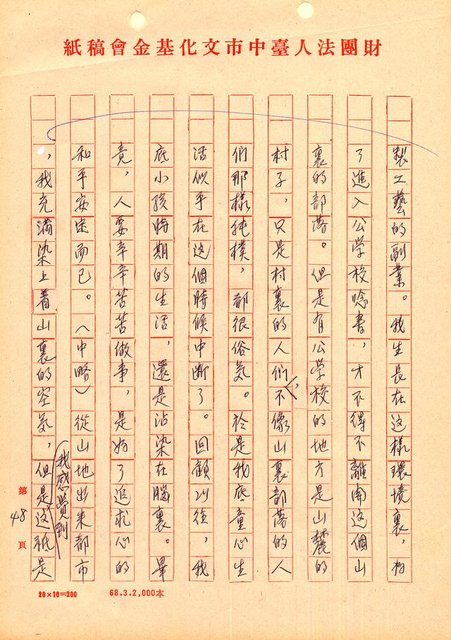 財團法人臺中市文化基金會稿紙
製工藝的副業。我生長在這樣環境裏,為
了進入公學校唸書,才不得不離開這個山
裏的部落。但是有公學校的地方是山麓的
村子,只是村裏的人們,不像山裏部落的人
們那樣純樸,都很俗氣。於是我底童心生
活似乎在這個時候中斷了。回顧以後,我
底小孩時期的生活,還是沾染在腦裏。畢
竟,人要辛辛苦苦做事,是為了追求心的
和平安定而已。(中略)從山地出來都市
,我充滿染上着山裏的空氣,但是這祗是
我感覺到
第 48 頁
20×10=200
68.3.2,000本